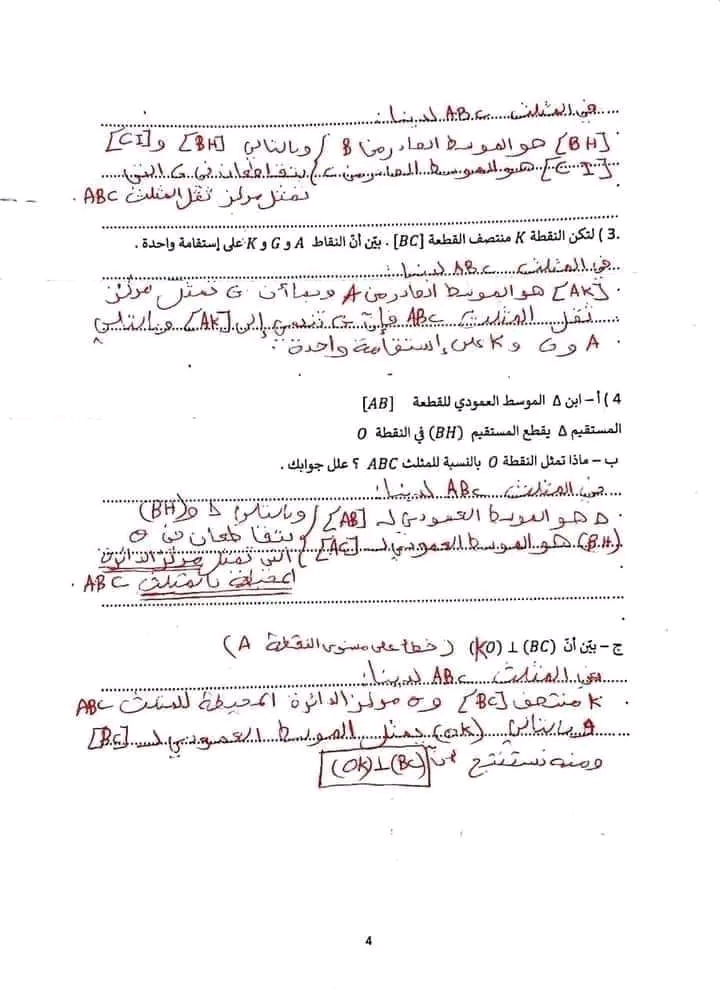 في المثلث ABC لدينا :
[BH] هو الموسط الصادر من B / وبالتالي [BH] و [CI]
[CI] هو الموسط الصادر من C / يتقاطعان في G التي
تمثل مركز ثقل المثلث ABC .
3 ) لتكن النقطة K منتصف القطعة [BC] . بيّن أنّ النقاط A و G و K على إستقامة واحدة .
في المثلث ABC لدينا :
[AK] هو الموسط الصادر من A وبما أن G تمثل مركز
ثقل المثلث ABC فإن G تنتمي إلى [AK] وبالتالي
A و G و K على إستقامة واحدة .
4 ) أ – ابن Δ الموسط العمودي للقطعة [AB]
المستقيم Δ يقطع المستقيم (BH) في النقطة O
ب – ماذا تمثل النقطة O بالنسبة للمثلث ABC ؟ علل جوابك .
في المثلث ABC لدينا :
Δ هو الموسط العمودي لـ [AB] / وبالتالي Δ و (BH)
(BH) هو الموسط العمودي لـ [AC] / يتقاطعان في O
التي تمثل مركز الدائرة
المحيطة بالمثلث ABC .
ج – بيّن أنّ (BC) ⊥ (KO) ( خطأ على مستوى النقطة A )
في المثلث ABC لدينا :
K منتصف [BC] و O مركز الدائرة المحيطة للمثلث ABC
وبالتالي (OK) يمثل الموسط العمودي لـ [BC]
ومنه نستنتج أن (OK)⊥(BC)
4